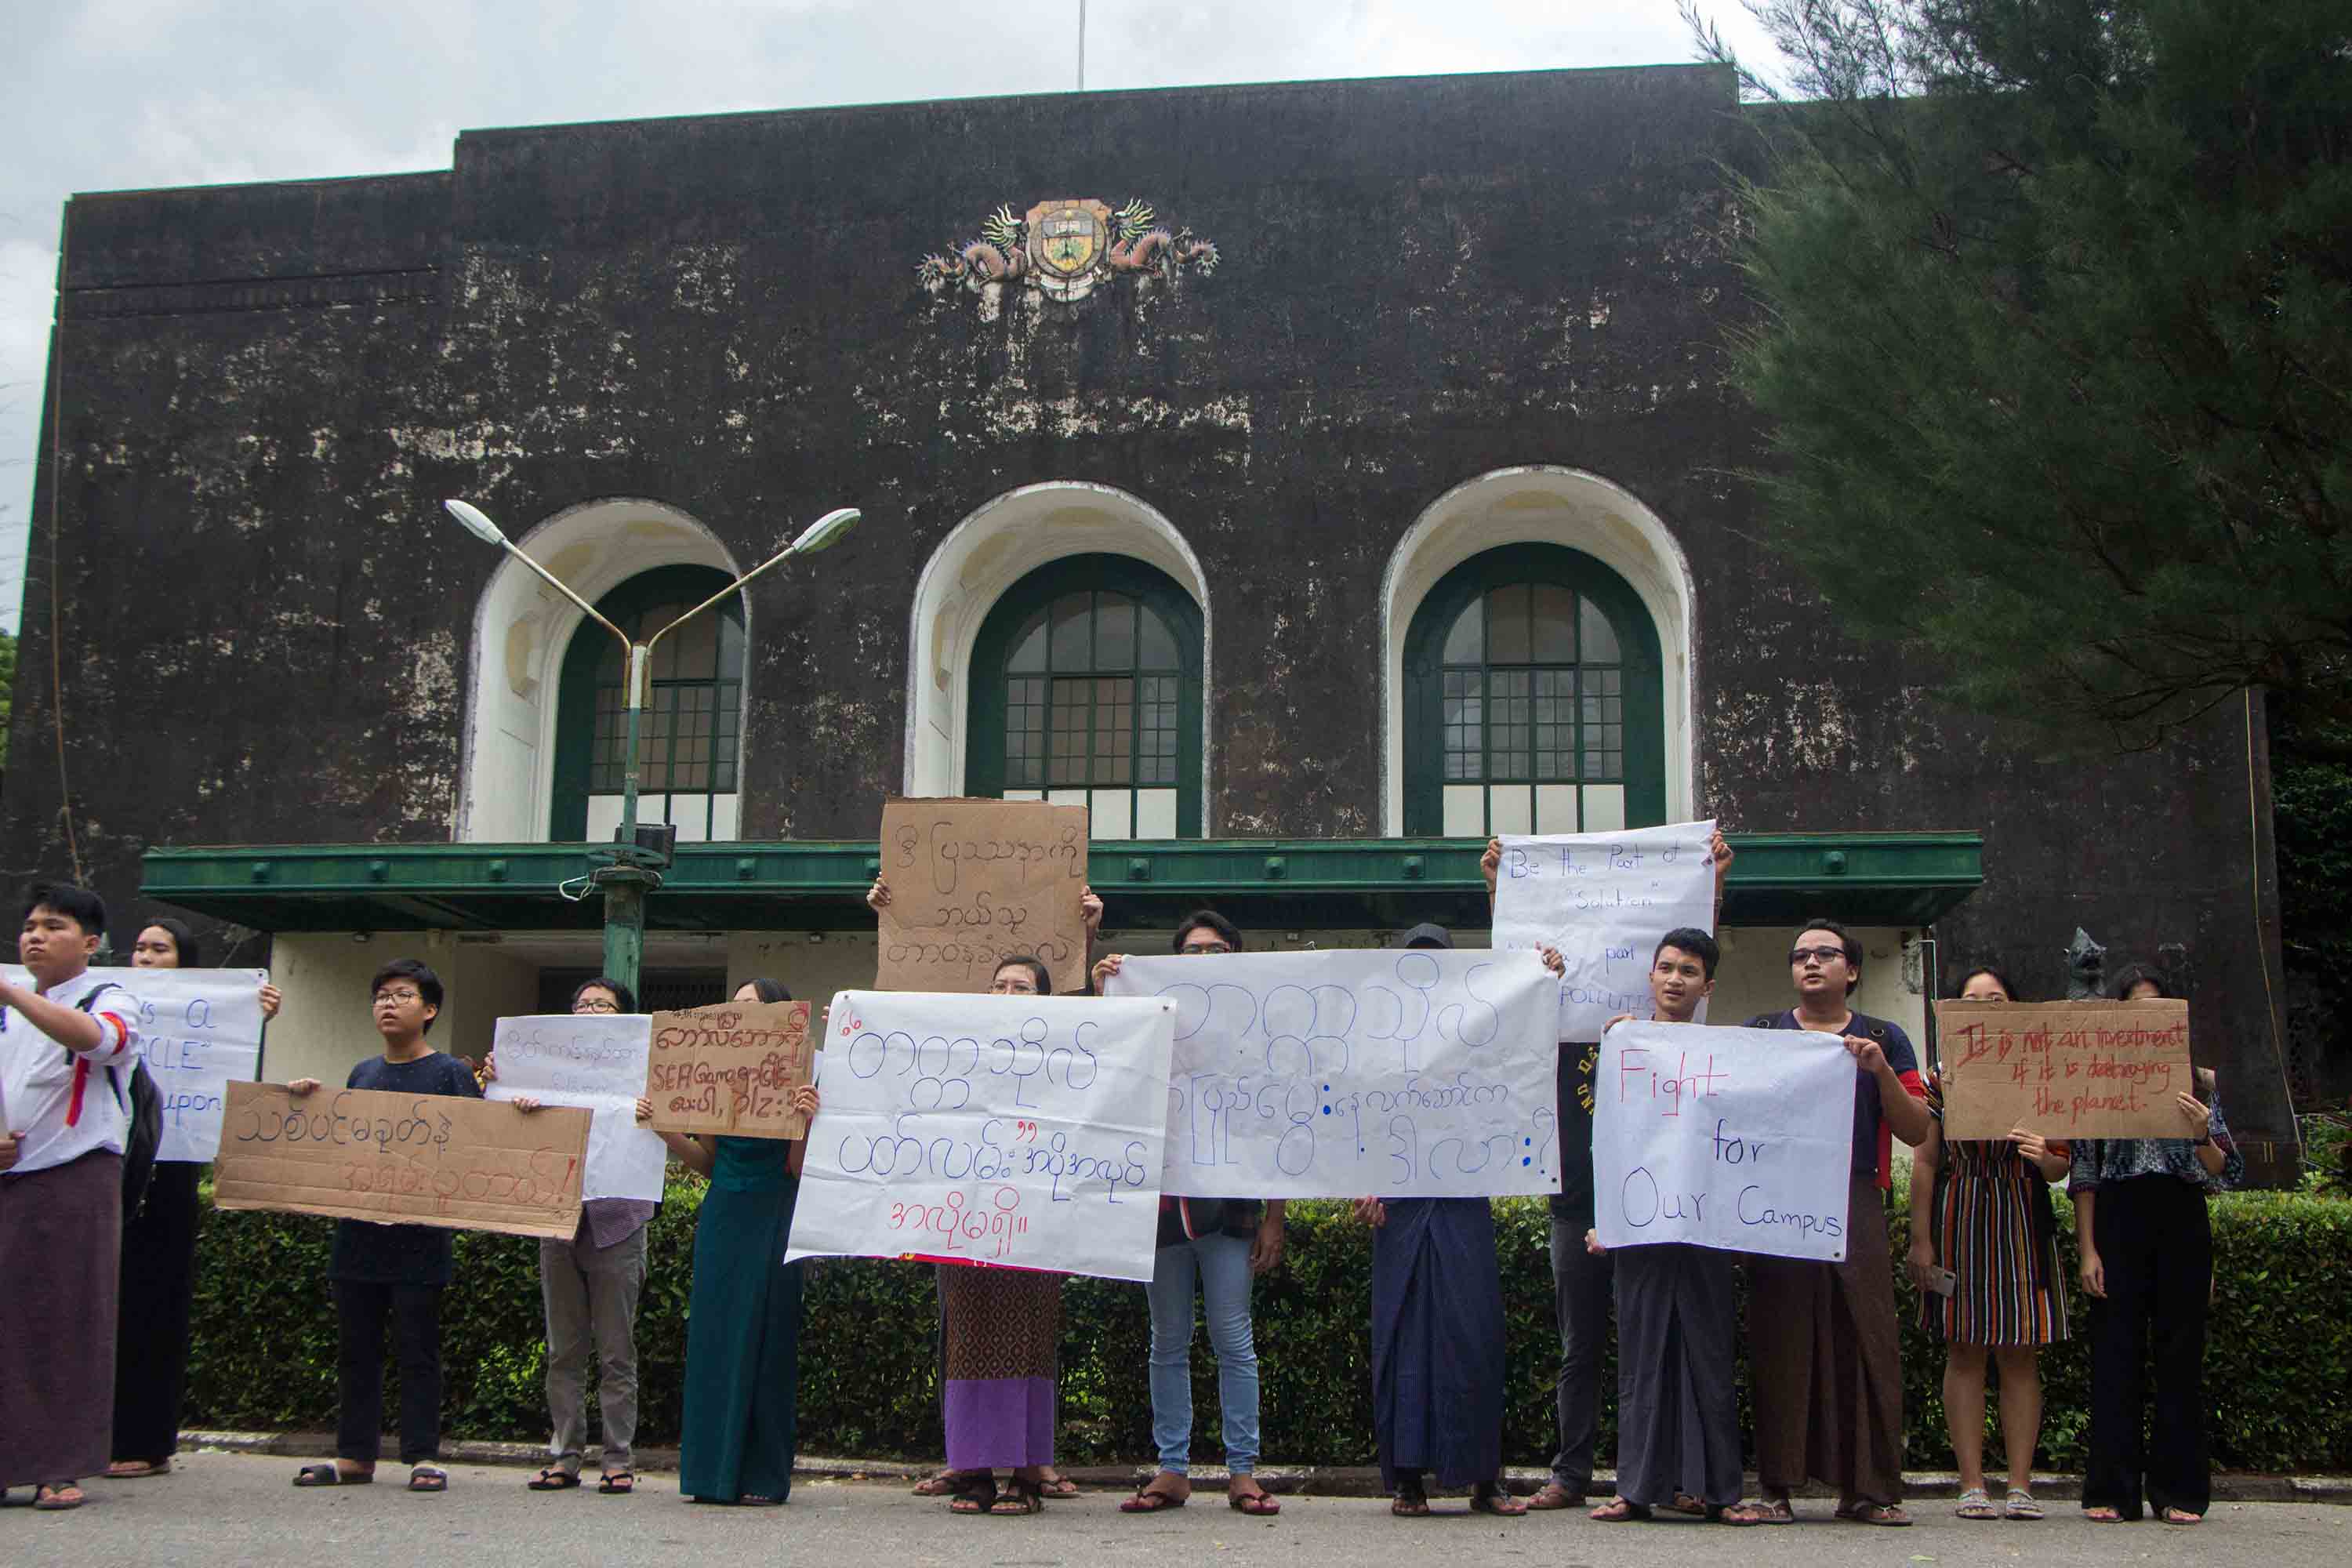 is a
upon
သစ်ပင်မခုတ်နဲ့
အရမ်းပူတယ်!
ဘော်လီဘောကို
SEA Game မှာပဲ
ဒီပြဿနာကို
ဘယ်သူ
တာဝန်ခံမှာလဲ
“တက္ကသိုလ်
ပတ်လမ်း” အပိုအလုပ်
အလိုမရှိ။
တက္ကသိုလ်
ပြည်မွေးနေ့လက်ဆောင်က
ဒါလား?
Be the Part of
"Solution"
part
POLLUTIO
Fight
for
Our Campus
It is not an investment
if it is destroying
the planet.